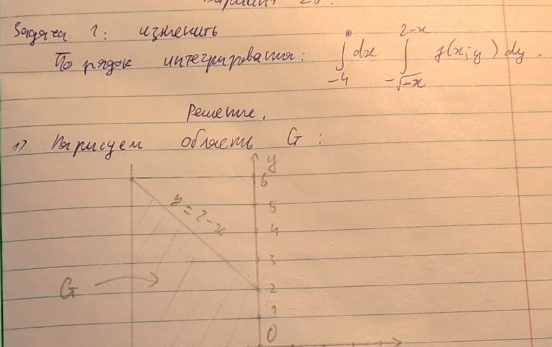 Вариант 20.
Задача 1: изменить
Порядок интегрирования: ∫₋₄⁰ dx ∫_{-√-x}^{2-x} f(x;y) dy.
Решение.
1) Нарисуем область G:
y
6
5
y=2-x
4
3
G
2
1
0